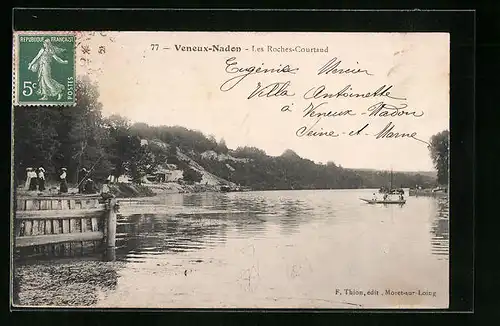 77 — Veneux-Nadon - Les Roches-Courtaud
REPUBLIQUE FRANÇAISE
5c
Eugénie Mercier
Villa Antoinette
à Veneux-Nadon
Seine-et-Marne
F. Thion, édit., Moret-sur-Loing